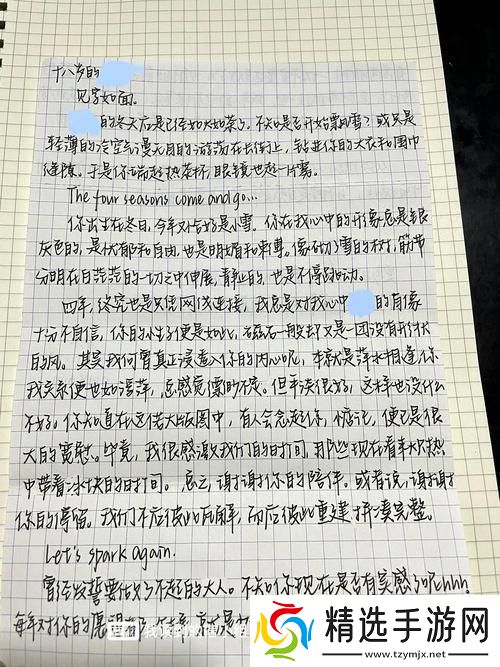 十八岁的
见字如面。
的冬天应是已经如火如荼了。不知是否开始飘雪？或只是
轻薄的冷空气漫无目的游荡在街上，钻进你的大衣和围巾
缝隙。于是你端起热茶杯，眼镜也起一片雾。
The four seasons come and go...
你出生在冬日，今年对应好是小雪。你在我心中的形象总是银
灰色的，是忧郁和自由，也是明媚和束缚。像初雪的树，筋节
分明在白茫茫的一切之中伸展，静止的，也是不得动的。
四年，终究也是只凭网线连接，我总是对我心中 的肖像
十分不自信，你的性子便是如此，磁石一般却又是一团没有形状
的风。其实我何曾真正浸透入你的内心呢，本就是萍水相逢，你
我关系便也如浮萍，总感觉飘渺不定。但平淡很好，这样也没什么
不好。你知道在这偌大版图中，有人会念起你，惦记，便已是很
大的宽慰。毕竟，我很感激我们的时间，那些现在看来水热
中带着冰块的时间。总之，谢谢你的陪伴。或者说，谢谢
你的停留。我们不应彼此瓦解，而应彼此重建拼凑完整。
Let's spark again.
曾经发誓要做了不起的大人。不知你现在是否有实感了呢hhh。
每年对你的愿望
精选手游网
www.tzymjx.net